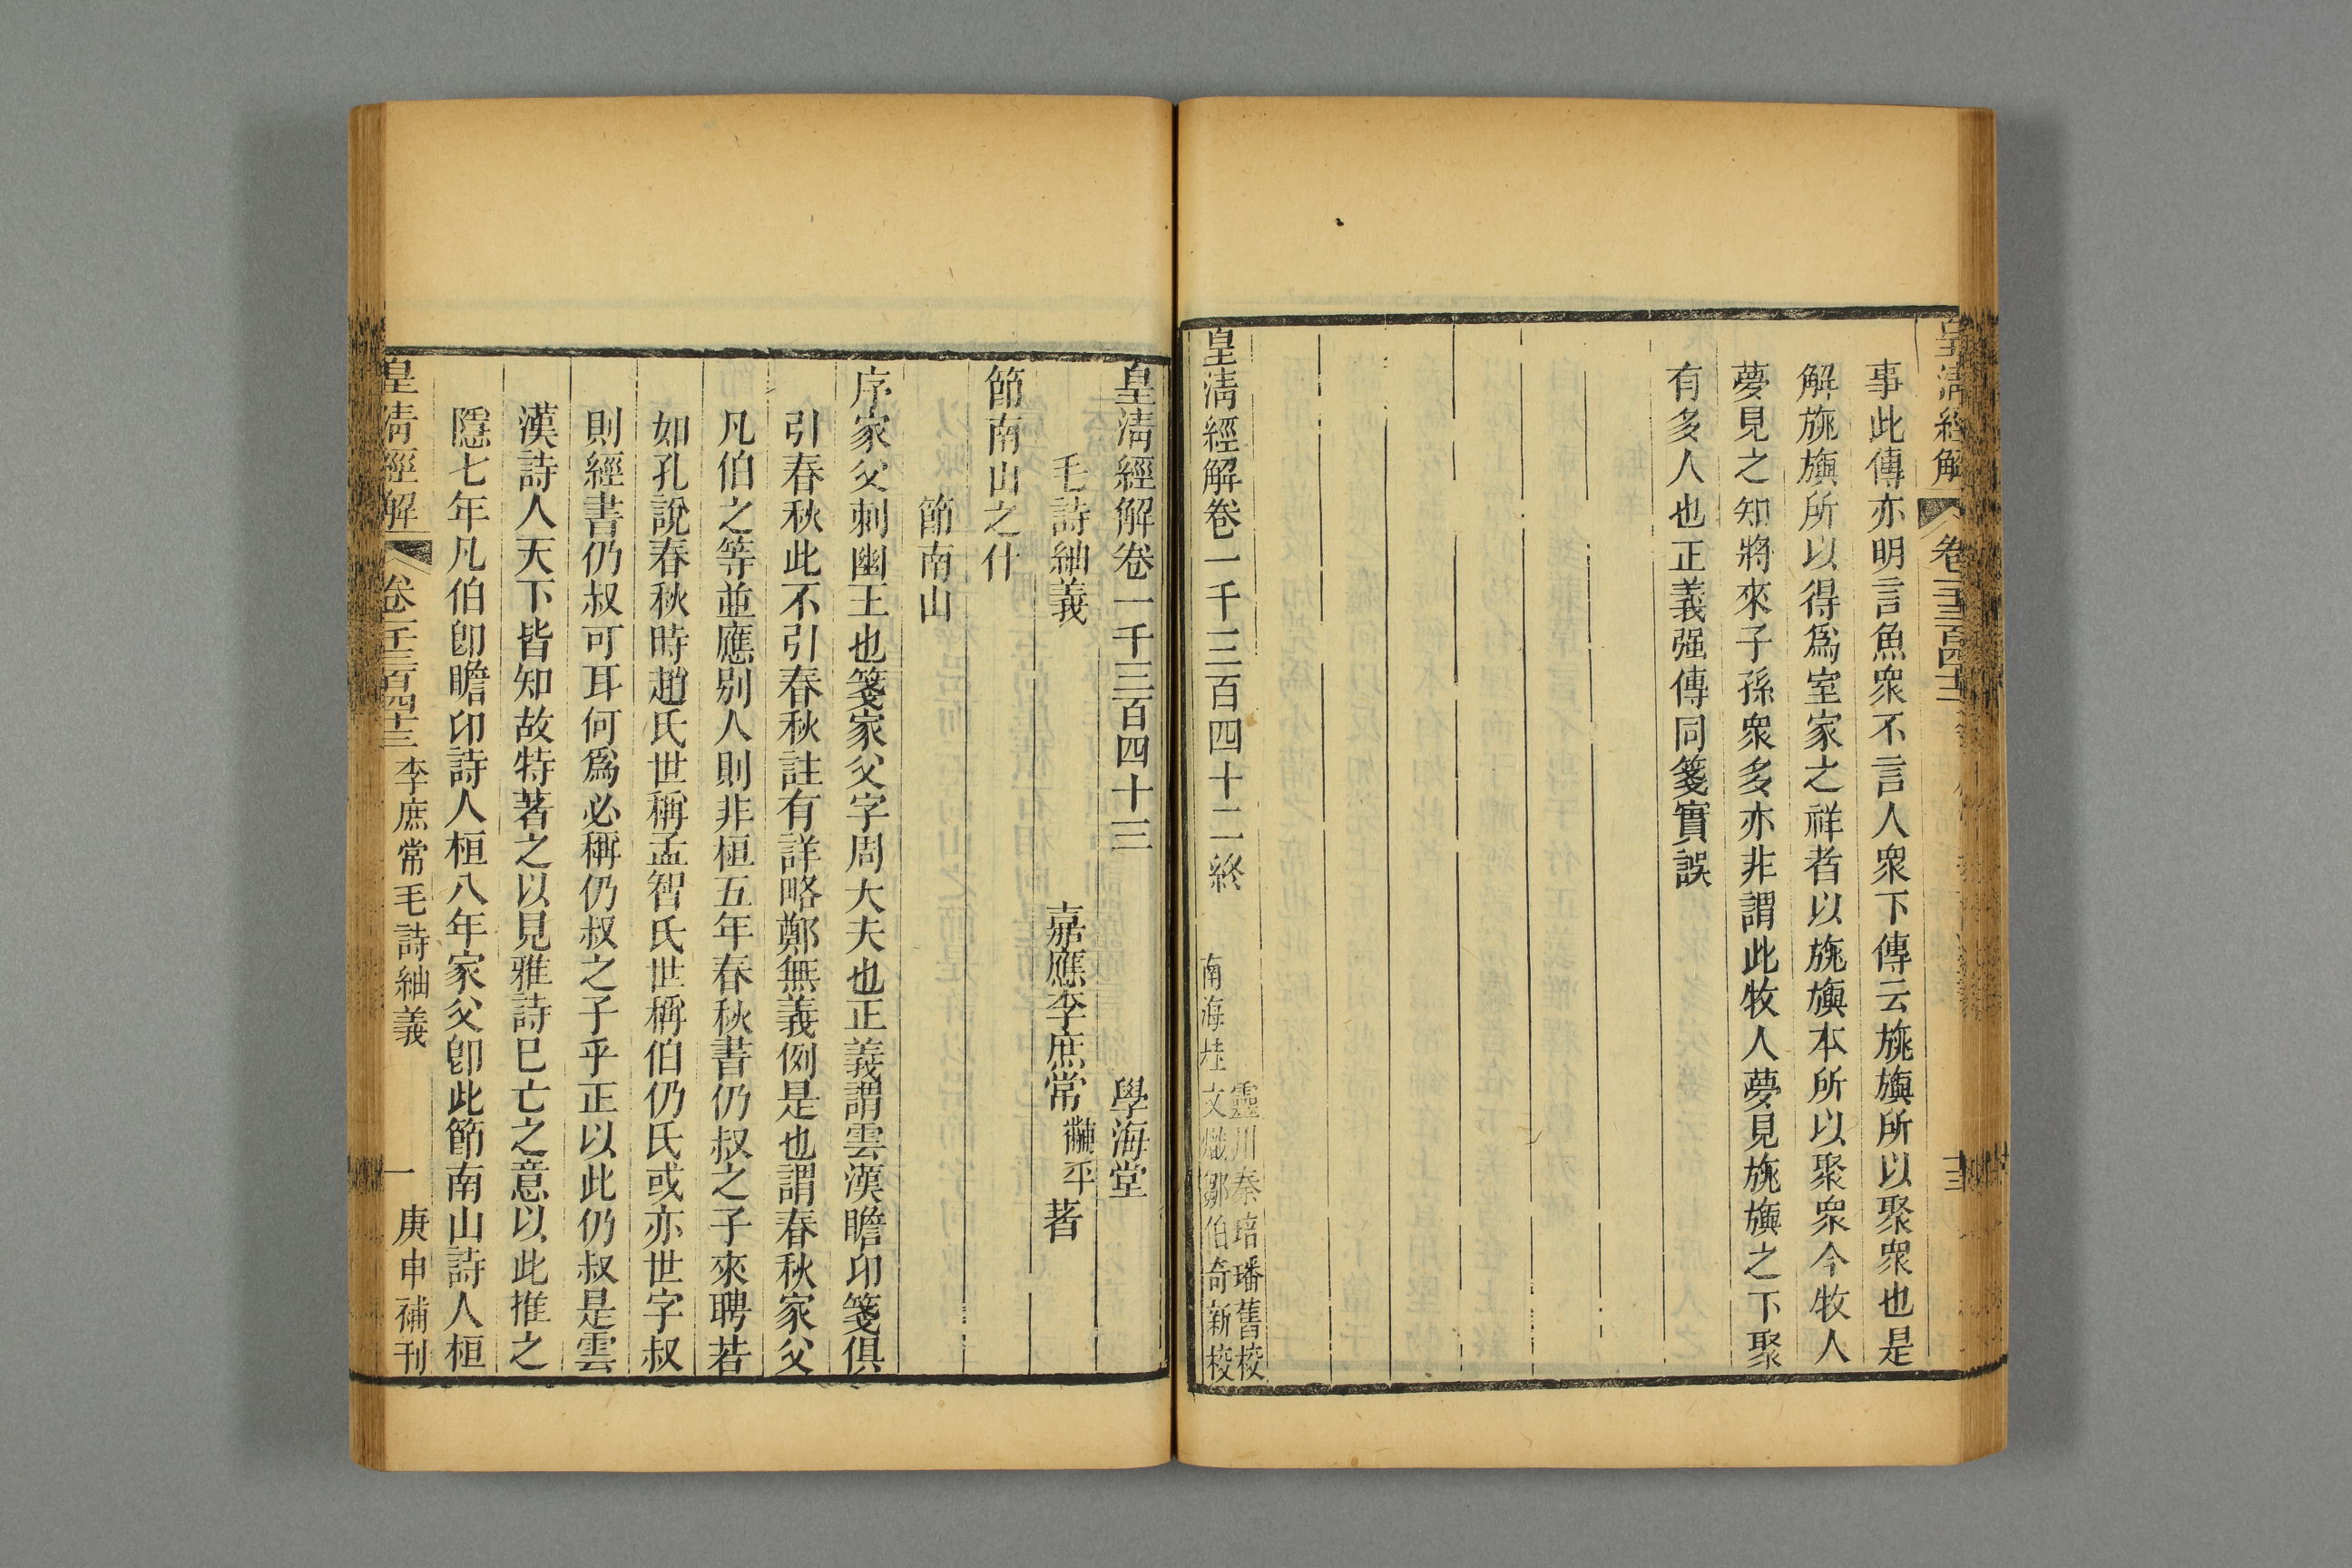 皇清經解
事此傳亦明言魚衆不言人衆下傳云旐旟所以聚衆也是
解旐旟所以得爲室家之祥者以旐旟本所以聚衆今牧人
夢見之知將來子孫衆多亦非謂此牧人夢見旐旟之下聚
有多人也正義强傳同箋實誤
皇清經解卷一千三百四十二終
靈川秦培璠舊校
南海桂文熾鄒伯奇新校
皇清經解卷一千三百四十三
學海堂
毛詩紬義
嘉應李庶常黼平著
節南山之什
節南山
序家父刺幽王也箋家父字周大夫也正義謂雲漢瞻卬箋俱
引春秋此不引春秋註有詳略鄭無義例是也謂春秋家父
凡伯之等並應別人則非桓五年春秋書仍叔之子來聘若
如孔說春秋時趙氏世稱孟智氏世稱伯仍氏或亦世字叔
則經書仍叔可耳何爲必稱仍叔之子乎正以此仍叔是雲
漢詩人天下皆知故特著之以見雅詩巳亡之意以此推之
隱七年凡伯卽瞻卬詩人桓八年家父卽此節南山詩人桓
皇清經解
卷一千三百四十三
李庶常毛詩紬義
一
庚申補刊